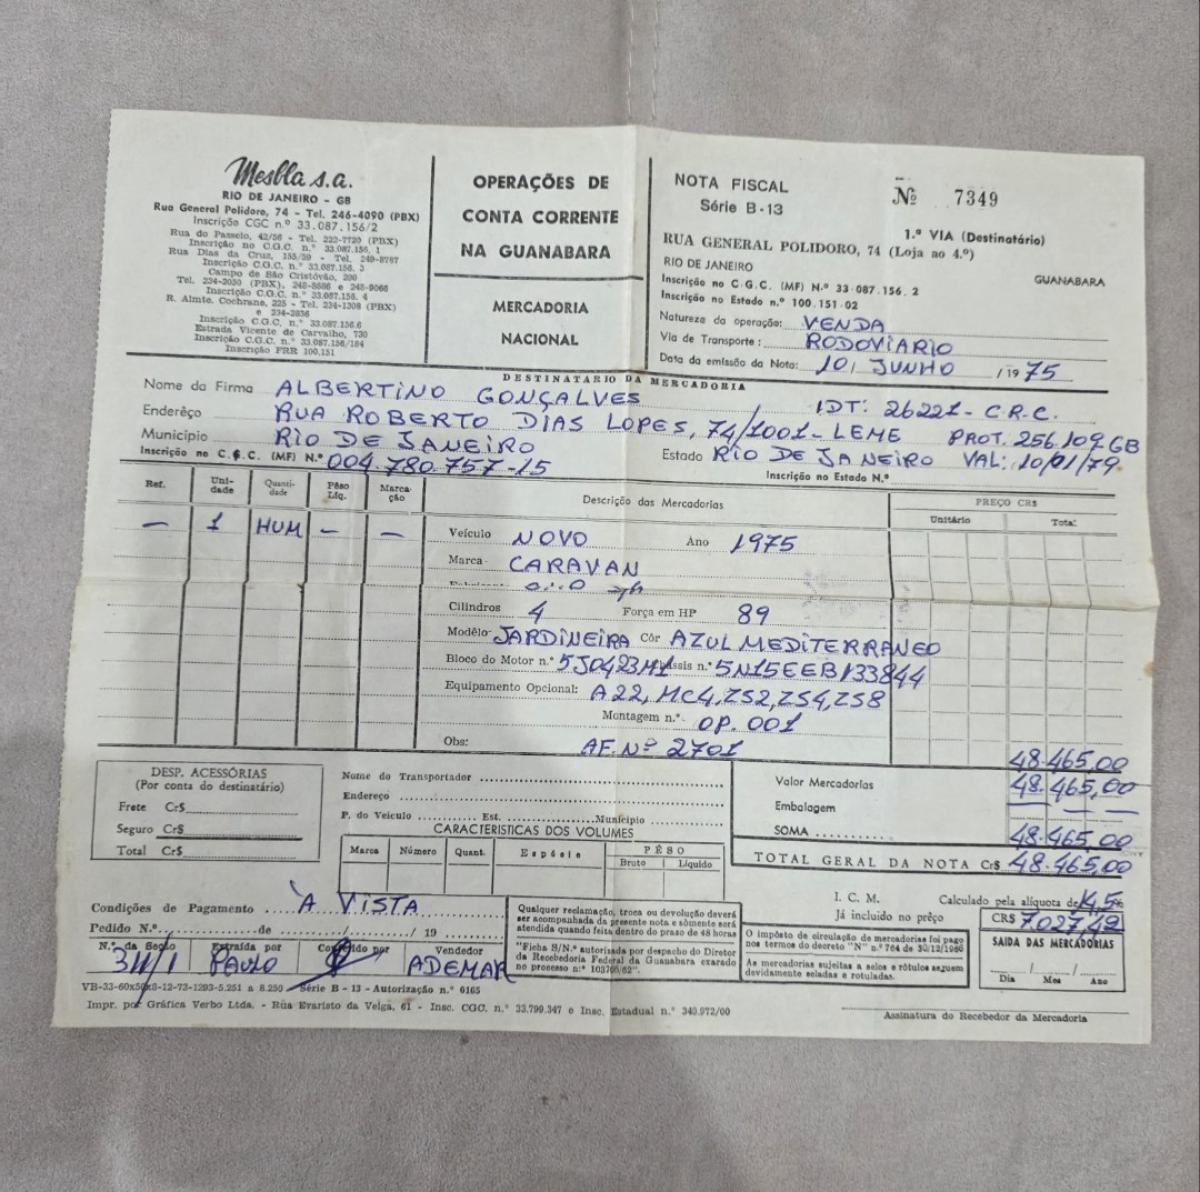 Mesbla s.a.
RIO DE JANEIRO - GB
Rua General Polidoro, 74 - Tel. 246-4090 (PBX)
Inscrição CGC n.º 33.087.156/2
Rua do Passeio, 42/56 - Tel. 222-7720 (PBX)
Inscrição no C.G.C. n.º 33.087.156. 1
Rua Dias da Cruz, 155/59 - Tel. 249-8787
Inscrição C.G.C. n.º 33.087.156. 3
Campo de São Cristóvão, 290
Tel. 234-2030 (PBX), 248-8686 e 248-9066
Inscrição C.G.C. n.º 33.087.156. 4
R. Almte. Cochrane, 225 - Tel. 234-1308 (PBX)
e 234-2836
Inscrição C.G.C. n.º 33.087.156.6
Estrada Vicente de Carvalho, 730
Inscrição C.G.C. n.º 33.087.156/184
Inscrição FRR 100.151
OPERAÇÕES DE
CONTA CORRENTE
NA GUANABARA
MERCADORIA
NACIONAL
NOTA FISCAL
Série B-13
Nº 7349
1.ª VIA (Destinatário)
RUA GENERAL POLIDORO, 74 (Loja ao 4.º)
RIO DE JANEIRO GUANABARA
Inscrição no C.G.C. (MF) N.º 33.087.156.2
Inscrição no Estado n.º 100.151.02
Natureza da operação: VENDA
Via de Transporte: RODOVIARIO
Data da emissão da Nota: 10, JUNHO /1975
DESTINATÁRIO DA MERCADORIA
Nome da Firma ALBERTINO GONÇALVES IDT: 26221-C.R.C.
Enderêço RUA ROBERTO DIAS LOPES, 74/1001-LEME PROT. 256.109 GB
Município RIO DE JANEIRO Estado RIO DE JANEIRO VAL: 10/01/79
Inscrição no C.G.C. (MF) N.º 004.780.757-15 Inscrição no Estado N.º
Ref. Unidade Quantidade Pêso Líq. Marcação Descrição das Mercadorias PREÇO CR$
Unitário Total
— 1 HUM — — Veículo NOVO Ano 1975
Marca CARAVAN
Cilindros 4 Força em HP 89
Modêlo JARDINEIRA Côr AZUL MEDITERRANEO
Bloco do Motor n.º 5J0423M1 Chassis n.º 5N15EEB133844
Equipamento Opcional: A22, MC4, ZS2, ZS4, ZS8
Montagem n.º OP. 001
Obs: AF. Nº 2701
48.465,00
DESP. ACESSÓRIAS
(Por conta do destinatário)
Frete Cr$
Seguro Cr$
Total Cr$
Nome do Transportador
Endereço
P. do Veículo Est. Município
CARACTERISTICAS DOS VOLUMES
Marca Número Quant. Espécie PÊSO
Bruto Líquido
Valor Mercadorias 48.465,00
Embalagem — — —
SOMA 48.465,00
TOTAL GERAL DA NOTA Cr$ 48.465,00
I. C. M. Calculado pela alíquota de 14,5%
Já incluído no prêço CR$ 7.027,42
Condições de Pagamento À VISTA
Pedido N.º de / / 19
N.º da Seção Extraída por Conferido por Vendedor
311/1 PAULO ADEMAR
Qualquer reclamação, troca ou devolução deverá
ser acompanhada da presente nota e sòmente será
atendida quando feita dentro do prazo de 48 horas
"Ficha S/N.º autorizada por despacho do Diretor
da Recebedoria Federal da Guanabara exarado
no processo n.º 103766/62".
O impôsto de circulação de mercadorias foi pago
nos termos do decreto "N" n.º 764 de 30/12/1966
As mercadorias sujeitas a selos e rótulos seguem
devidamente seladas e rotuladas.
SAIDA DAS MERCADORIAS
Dia Mes Ano
Série B - 13 - Autorização n.º 0165
Impr. por Gráfica Verbo Ltda. - Rúa Evaristo da Veiga, 61 - Insc. CGC. n.º 33.799.347 e Insc. Estadual n.º 340.972/00
Assinatura do Recebedor da Mercadoria